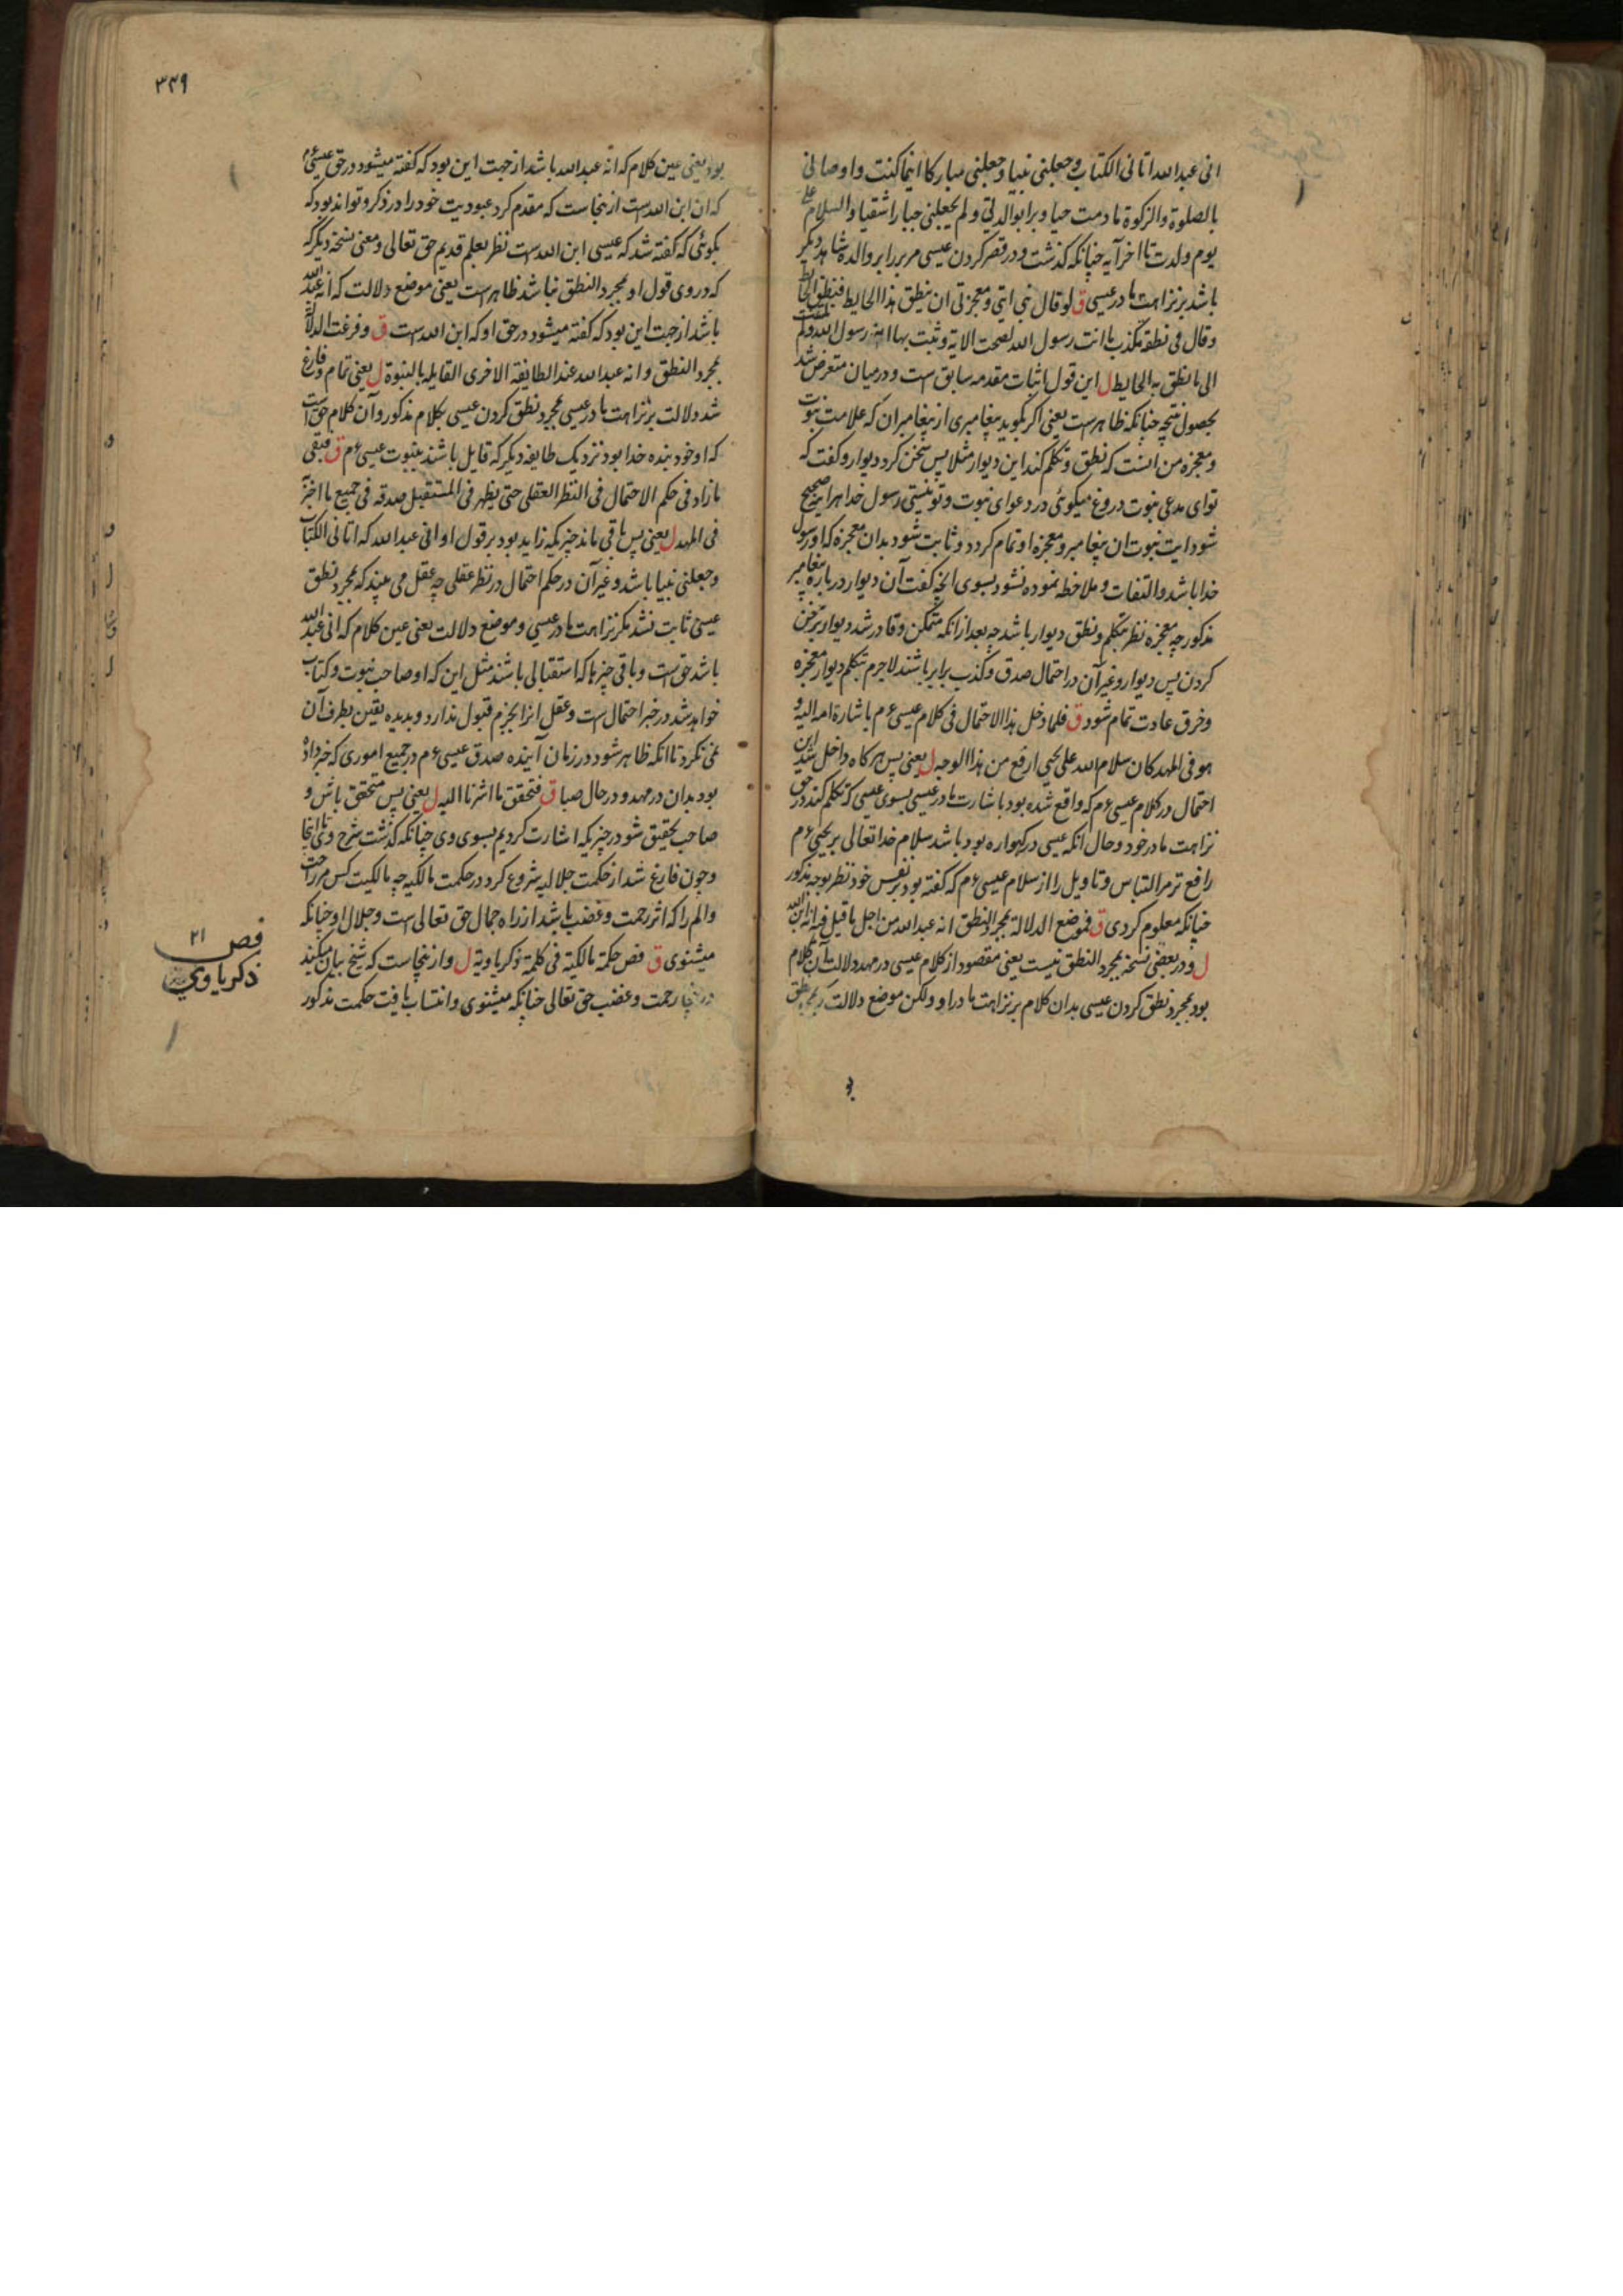 انی عبد الله اتانی الکتاب وجعلنی نبیا وجعلنی مبارکا اینما کنت واوصانی
بالصلوة والزکوة ما دمت حیا وبرا بوالدتی ولم یجعلنی جبارا شقیا والسلام علی
یوم ولدت تا اخر آیه چنانکه کذشت ودر قصر کردن عیسی مر بر را بر والده شاهد دیکر
باشد بر نزاهت مادر عیسی ق لو قال نبی ایتی ومعجزتی ان ینطق هذا الحایط فنطق الحایط
وقال فی نطقه تکذب ما انت رسول الله لصحت الایة وثبت بها انه رسول الله ولم یلتفت
الی ما نطق به الحایط ل این قول اثبات مقدمه سابق است ودر میان متعرض شد
بحصول نتیجه چنانکه ظاهرست یعنی اکر بکوید پیغامبری از پیغامبران که علامت نبوت
ومعجزه من انست که نطق وتکلم کند این دیوار مثلا پس سخن کرد دیوار وکفت که
تو ای مدعی نبوت دروغ میکوئی در دعوای نبوت وتو نیستی رسول خدا هراینه صحیح
شود ایت نبوت ان پیغامبر ومعجزه او تمام کردد وثابت شود بدان معجزه که او رسول
خدا باشد والتفات وملاحظه نموده نشود بسوی انچه کفت آن دیوار در باره پیغامبر
مذکور چه معجزه نظر بتکلم ونطق دیوار باشد چه بعد ازانکه متمکن وقادر شد دیوار بر سخن
کردن پس دیوار وغیر آن در احتمال صدق وکذب برابر باشند لاجرم بتکلم دیوار معجزه
وخرق عادت تمام شود ق فلما دخل هذا الاحتمال فی کلام عیسی ع م باشارة امه الیه و
هو فی المهد کان سلام الله علی یحیی ارفع من هذا الوجه ل یعنی پس هرکاه داخل شد این
احتمال در کلام عیسی ع م که واقع شده بود باشارت مادر عیسی بسوی عیسی که تکلم کند در حق
نزاهت مادر خود وحال انکه عیسی در کهواره بود باشد سلام خدا تعالی بر یحیی ع م
رافع تر مر التباس وتاویل را از سلام عیسی ع م که کفته بود بر نفس خود نظر بوجه مذکور
چنانکه معلوم کردی ق فموضع الدلالة بمجرد النطق انه عبد الله من اجل ما قیل فیه انه ابن الله
ل ودر بعضی نسخه بمجرد النطق نیست یعنی مقصود از کلام عیسی در مهد دلالت آن کلام
بود بمجرد نطق کردن عیسی بدان کلام بر نزاهت مادر او ولکن موضع دلالت که بمجرد نطق
۳۴۹
بود یعنی عین کلام که انه عبد الله باشد از جهت این بود که کفته میشود در حق عیسی ع م
که ان ابن الله ست ازینجاست که مقدم کرد عبودیت خود را در ذکر وتواند بود که
بکوئی که کفته شد که عیسی ابن الله ست نظر بعلم قدیم حق تعالی ومعنی نسخه دیکر که
که در وی قول او بمجرد النطق نباشد ظاهرست یعنی موضع دلالت که انه عبد الله
باشد از جهت این بود که کفته میشود در حق او که ابن الله ست ق وفرغت الدلالة
بمجرد النطق وانه عبد الله عند الطایفة الاخری القایله بالنبوة ل یعنی تمام وفارغ
شد دلالت بر نزاهت مادر عیسی بمجرد نطق کردن عیسی بکلام مذکور وآن کلام حق است
که او خود بنده خدا بود نزدیک طایفه دیکر که قایل باشند بنبوت عیسی ع م ق فبقی
ما زاد فی حکم الاحتمال فی النظر العقلی حتی یظهر فی المستقبل صدقه فی جمیع ما اخبر
فی المهد ل یعنی پس باقی ماند چیزیکه زاید بود بر قول او انی عبد الله که اتانی الکتاب
وجعلنی نبیا باشد وغیر آن در حکم احتمال در نظر عقلی چه عقل می بیند که بمجرد نطق
عیسی ثابت نشد مکر نزاهت مادر عیسی وموضع دلالت یعنی عین کلام که انی عبد الله
باشد حق ست وباقی چیزها که استقبالی باشند مثل این که او صاحب نبوت وکتاب
خواهد شد در خبر احتمال ست وعقل انرا بجزم قبول ندارد وبدیده یقین بطرف آن
نمی نکرد تا انکه ظاهر شود در زمان آینده صدق عیسی ع م در جمیع اموری که خبر داده
بود بدان در مهد ودر حال صبا ق فتحقق ما اشرنا الیه ل یعنی پس متحقق باش و
صاحب تحقیق شو در چیزیکه اشارت کردیم بسوی وی چنانکه کذشت شرح وی تا اینجا
وچون فارغ شد از حکمت جلالیه شروع کرد در حکمت مالکیه چه مالکیت کس مر راحت
والم را که اثر رحمت وغضب باشد از راه جمال حق تعالی ست وجلال او چنانکه
میشنوی ق فص حکمة مالکیة فی کلمة زکریاویة ل وازینجاست که شیخ بیان میکند
درینجا رحمت وغضب حق تعالی چنانکه میشنوی وانتساب یافت حکمت مذکور
فص ۲۱
ذکریاوی